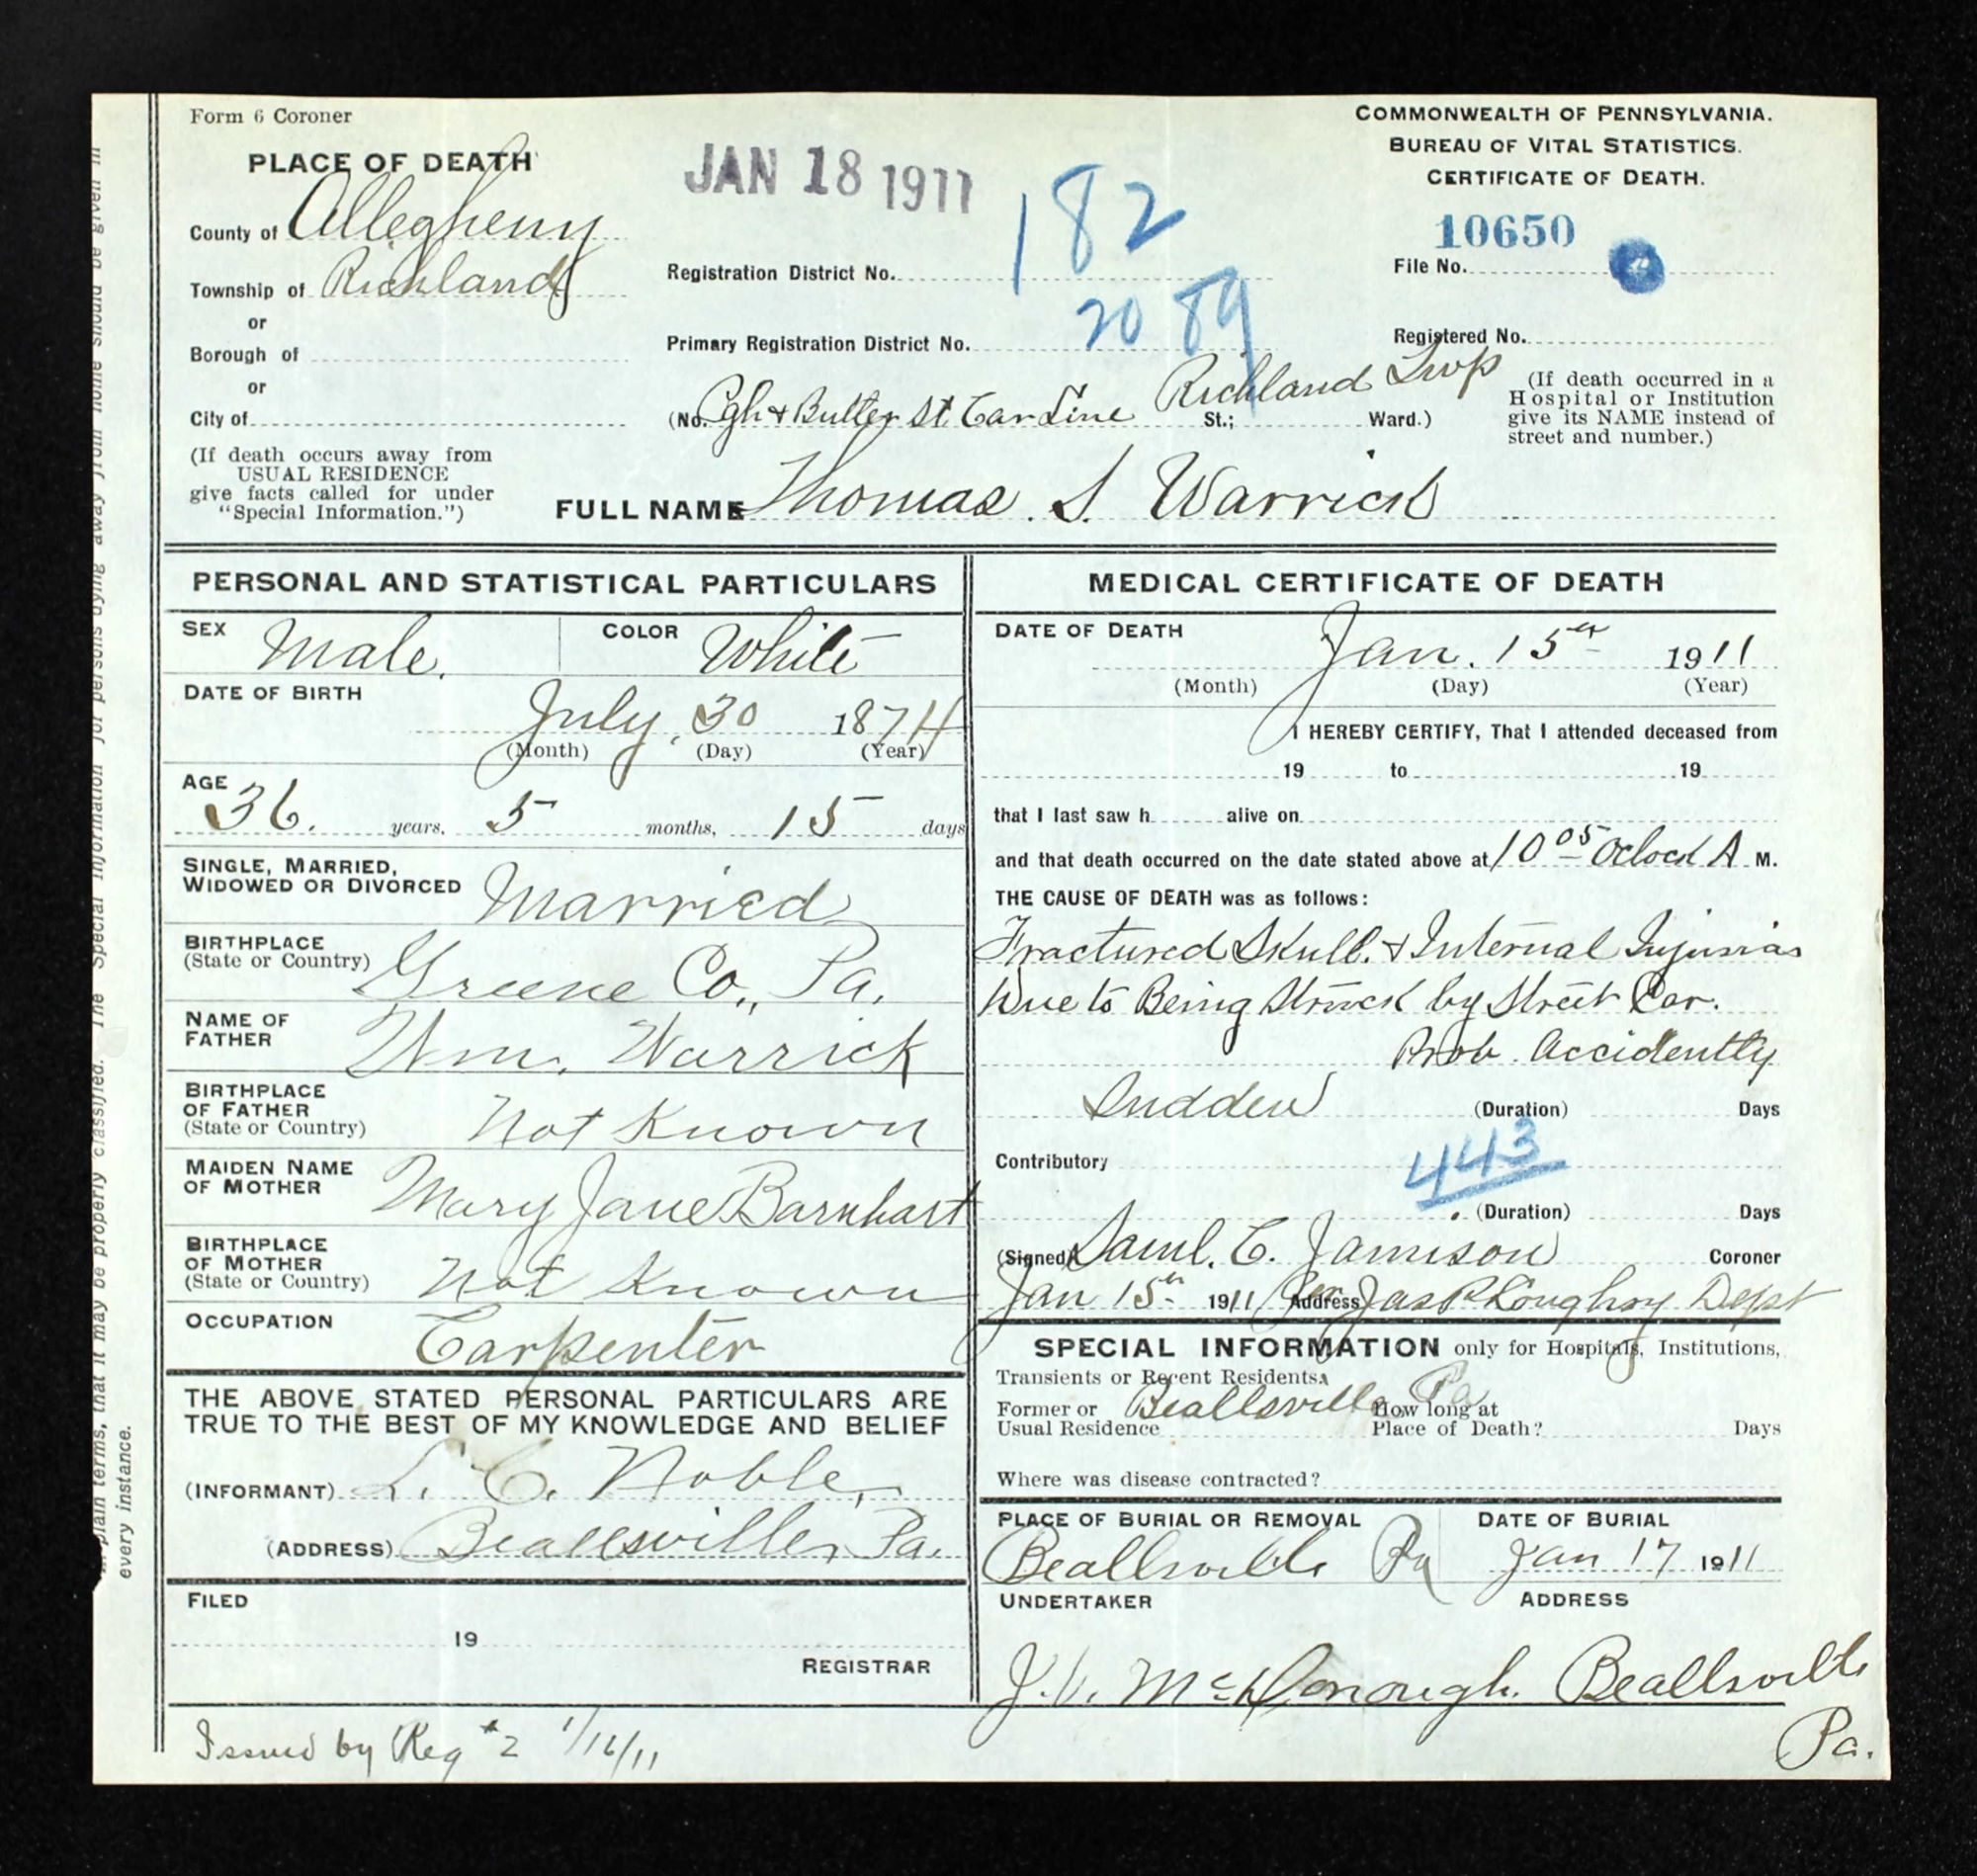 Form 6 Coroner
COMMONWEALTH OF PENNSYLVANIA.
BUREAU OF VITAL STATISTICS.
CERTIFICATE OF DEATH.
PLACE OF DEATH
JAN 18 1911
182
10650
County of Allegheny
Registration District No.
File No.
Township of Richland
2089
or
Primary Registration District No.
Registered No.
Borough of
or
City of
(No. Pgh & Butler St. Car Line Richland Twp St.; Ward.)
(If death occurred in a
Hospital or Institution
give its NAME instead of
street and number.)
(If death occurs away from
USUAL RESIDENCE
give facts called for under
"Special Information.")
FULL NAME Thomas. S. Warrick
PERSONAL AND STATISTICAL PARTICULARS
SEX Male. COLOR White
DATE OF BIRTH
July, 30 1874
(Month) (Day) (Year)
AGE
36. years, 5 months, 15 days
SINGLE, MARRIED,
WIDOWED OR DIVORCED Married
BIRTHPLACE
(State or Country) Greene Co., Pa.
NAME OF
FATHER Wm. Warrick
BIRTHPLACE
OF FATHER
(State or Country) Not Known
MAIDEN NAME
OF MOTHER Mary Jane Barnhart
BIRTHPLACE
OF MOTHER
(State or Country) Not Known
OCCUPATION Carpenter
THE ABOVE STATED PERSONAL PARTICULARS ARE
TRUE TO THE BEST OF MY KNOWLEDGE AND BELIEF
(INFORMANT) L. C. Noble,
(ADDRESS) Beallsville, Pa.
FILED
19
REGISTRAR
MEDICAL CERTIFICATE OF DEATH
DATE OF DEATH
Jan. 15th 1911
(Month) (Day) (Year)
I HEREBY CERTIFY, That I attended deceased from
19 to 19
that I last saw h alive on
and that death occurred on the date stated above at 10 05 Oclock A M.
THE CAUSE OF DEATH was as follows:
Fractured Skull. & Internal Injuries
Due to Being Struck by Street Car.
Prob. Accidently
Sudden (Duration) Days
Contributory 443
(Duration) Days
(Signed) Saml. C. Jamison Coroner
Jan 15th 1911 (Address) Per Jas Loughrey Dept
SPECIAL INFORMATION only for Hospitals, Institutions,
Transients or Recent Residents.
Former or
Usual Residence Beallsville, Pa
How long at
Place of Death? Days
Where was disease contracted?
PLACE OF BURIAL OR REMOVAL
Beallsville Pa
DATE OF BURIAL
Jan 17 1911
UNDERTAKER ADDRESS
J. V. McDonough. Beallsville
Pa.
Issued by Reg #2 1/16/11
in plain terms, that it may be properly classified. The Special Information for persons dying away from home should be given in
every instance.